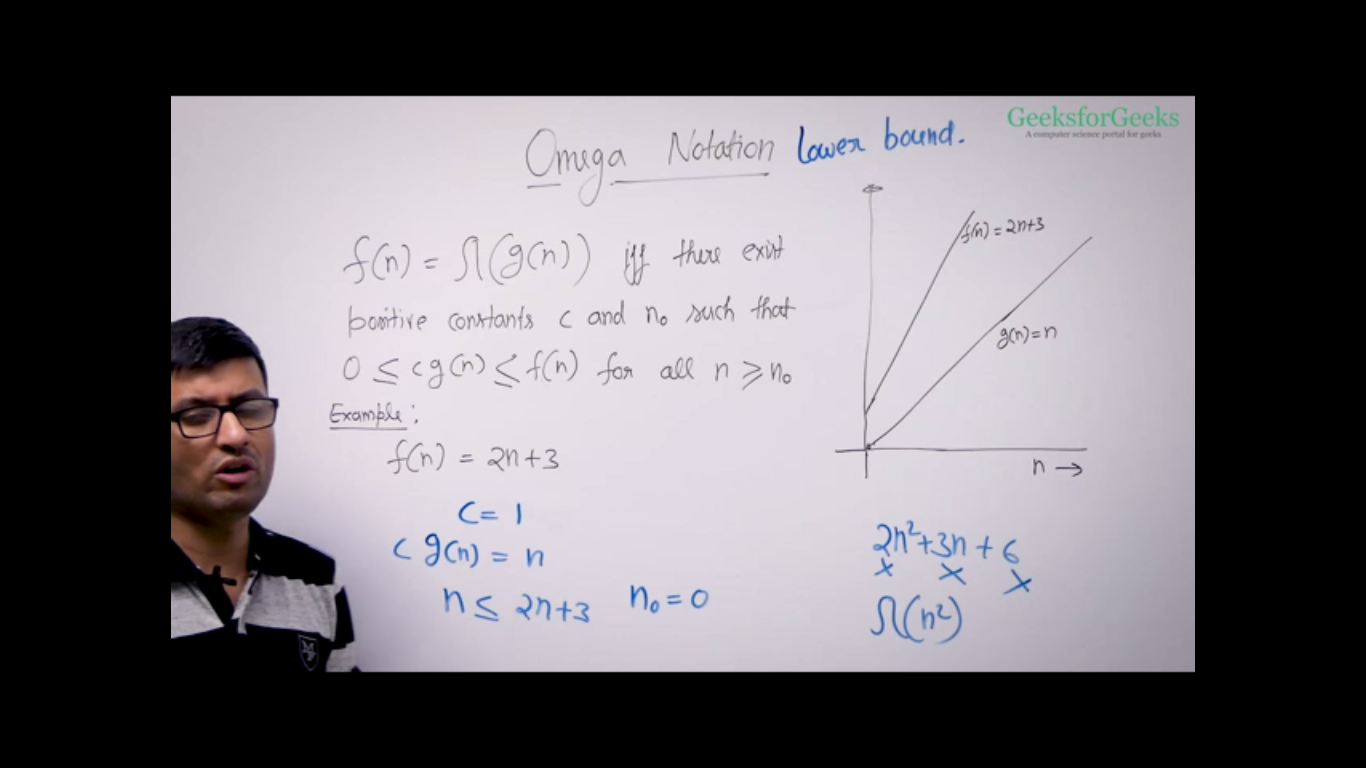 GeeksforGeeks
A computer science portal for geeks
Omega Notation lower bound.
f(n) = Ω(g(n)) iff there exist
positive constants c and n₀ such that
0 ≤ cg(n) ≤ f(n) for all n ≥ n₀
Example:
f(n) = 2n+3
C = 1
c g(n) = n
n ≤ 2n+3 n₀ = 0
f(n) = 2n+3
g(n) = n
n →
2n²+3n+6
x x x
Ω(n²)